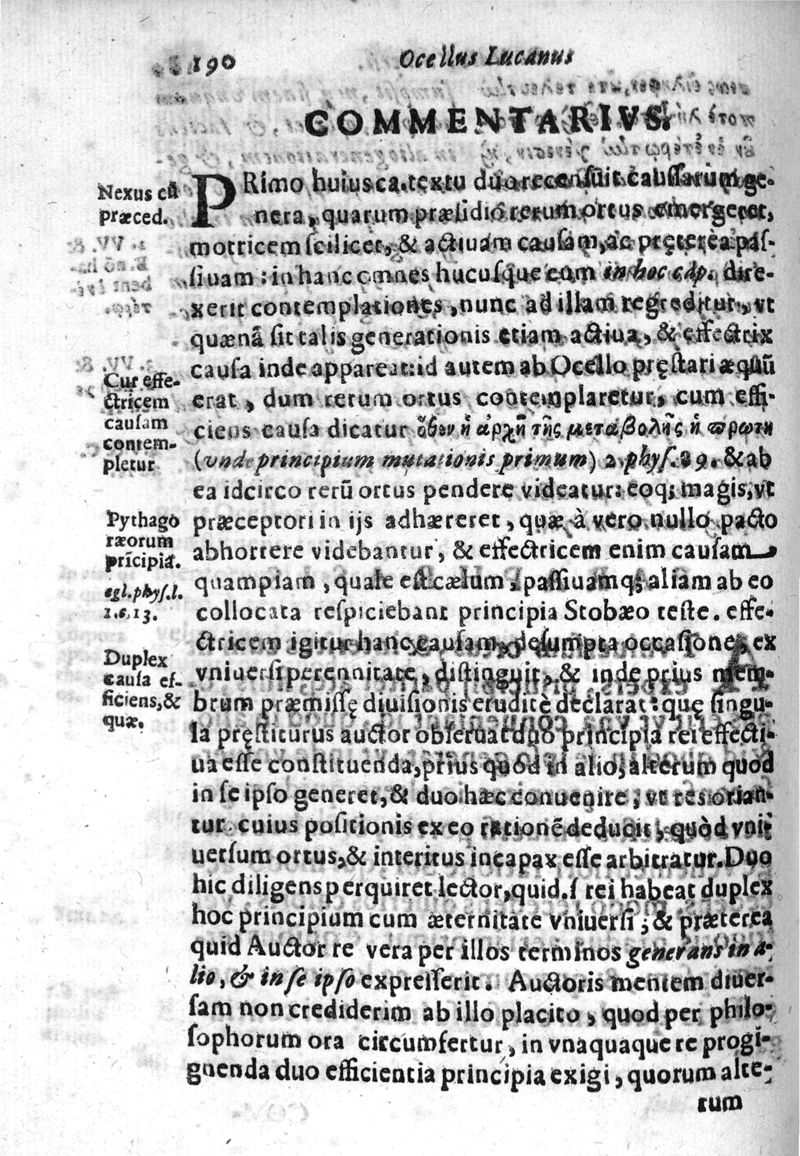 190 Ocellus Lucanus
COMMENTARIVS.
Nexus cũ
præced.
PRimo huius ca. textu duo recensuit caussarum ge-
nera, quarum præsidio rerum ortus emergeret,
motricem scilicet, & actiuam causam, ac pręterea pas-
siuam: in hanc omnes hucusque cum in hoc cap. dire-
xerit contemplationes, nunc ad illam regreditur, vt
quænã sit talis generationis etiam actiua, & effectrix
causa inde appareat: id autem ab Ocello pręstari æquũ
erat, dum rerum ortus contemplaretur, cum effi-
ciens causa dicatur ὅθεν ἡ ἀρχὴ τῆς μεταβολῆς ἡ πρώτη
(vnde principium mutationis primum) 2. phys. 29. & ab
ea idcirco rerũ ortus pendere videatur: eoq; magis, vt
præceptori in ijs adhæreret, quæ à vero nullo pacto
abhorrere videbantur, & effectricem enim causam
quampiam, quale est cælum, passiuamq; aliam ab eo
collocata respiciebant principia Stobæo teste. effe-
ctricem igitur hanc causam, desumpta occassione ex
vniuersi perennitate, distinguit, & inde prius mem-
brum præmissę diuisionis eruditè declarat: quę singu-
la pręstiturus auctor obseruat duo principia rei effecti-
ua esse constituenda, prius quòd in alio, alterum quod
in se ipso generet, & duo hæc conuenire, vt res orian-
tur. cuius positionis ex eo rationẽ deducit, quòd vni-
uersum ortus, & interitus incapax esse arbitratur. Duo
hic diligens perquiret lector, quid. s rei habeat duplex
hoc principium cum æternitate vniuersi; & præterea
quid Auctor re vera per illos terminos generans in a-
lio, & in se ipso expresserit. Auctoris mentem diuer-
sam non crediderim ab illo placito, quod per philo-
sophorum ora circumfertur, in vnaquaque re progi-
gnenda duo efficientia principia exigi, quorum alte-
rum
Cur effe-
ctricem
causam
contem-
pletur
Pythago
ræorum
prĩcipia.
egl. phys. l.
1. c. 13.
Duplex
causa ef-
ficiens, &
quæ.